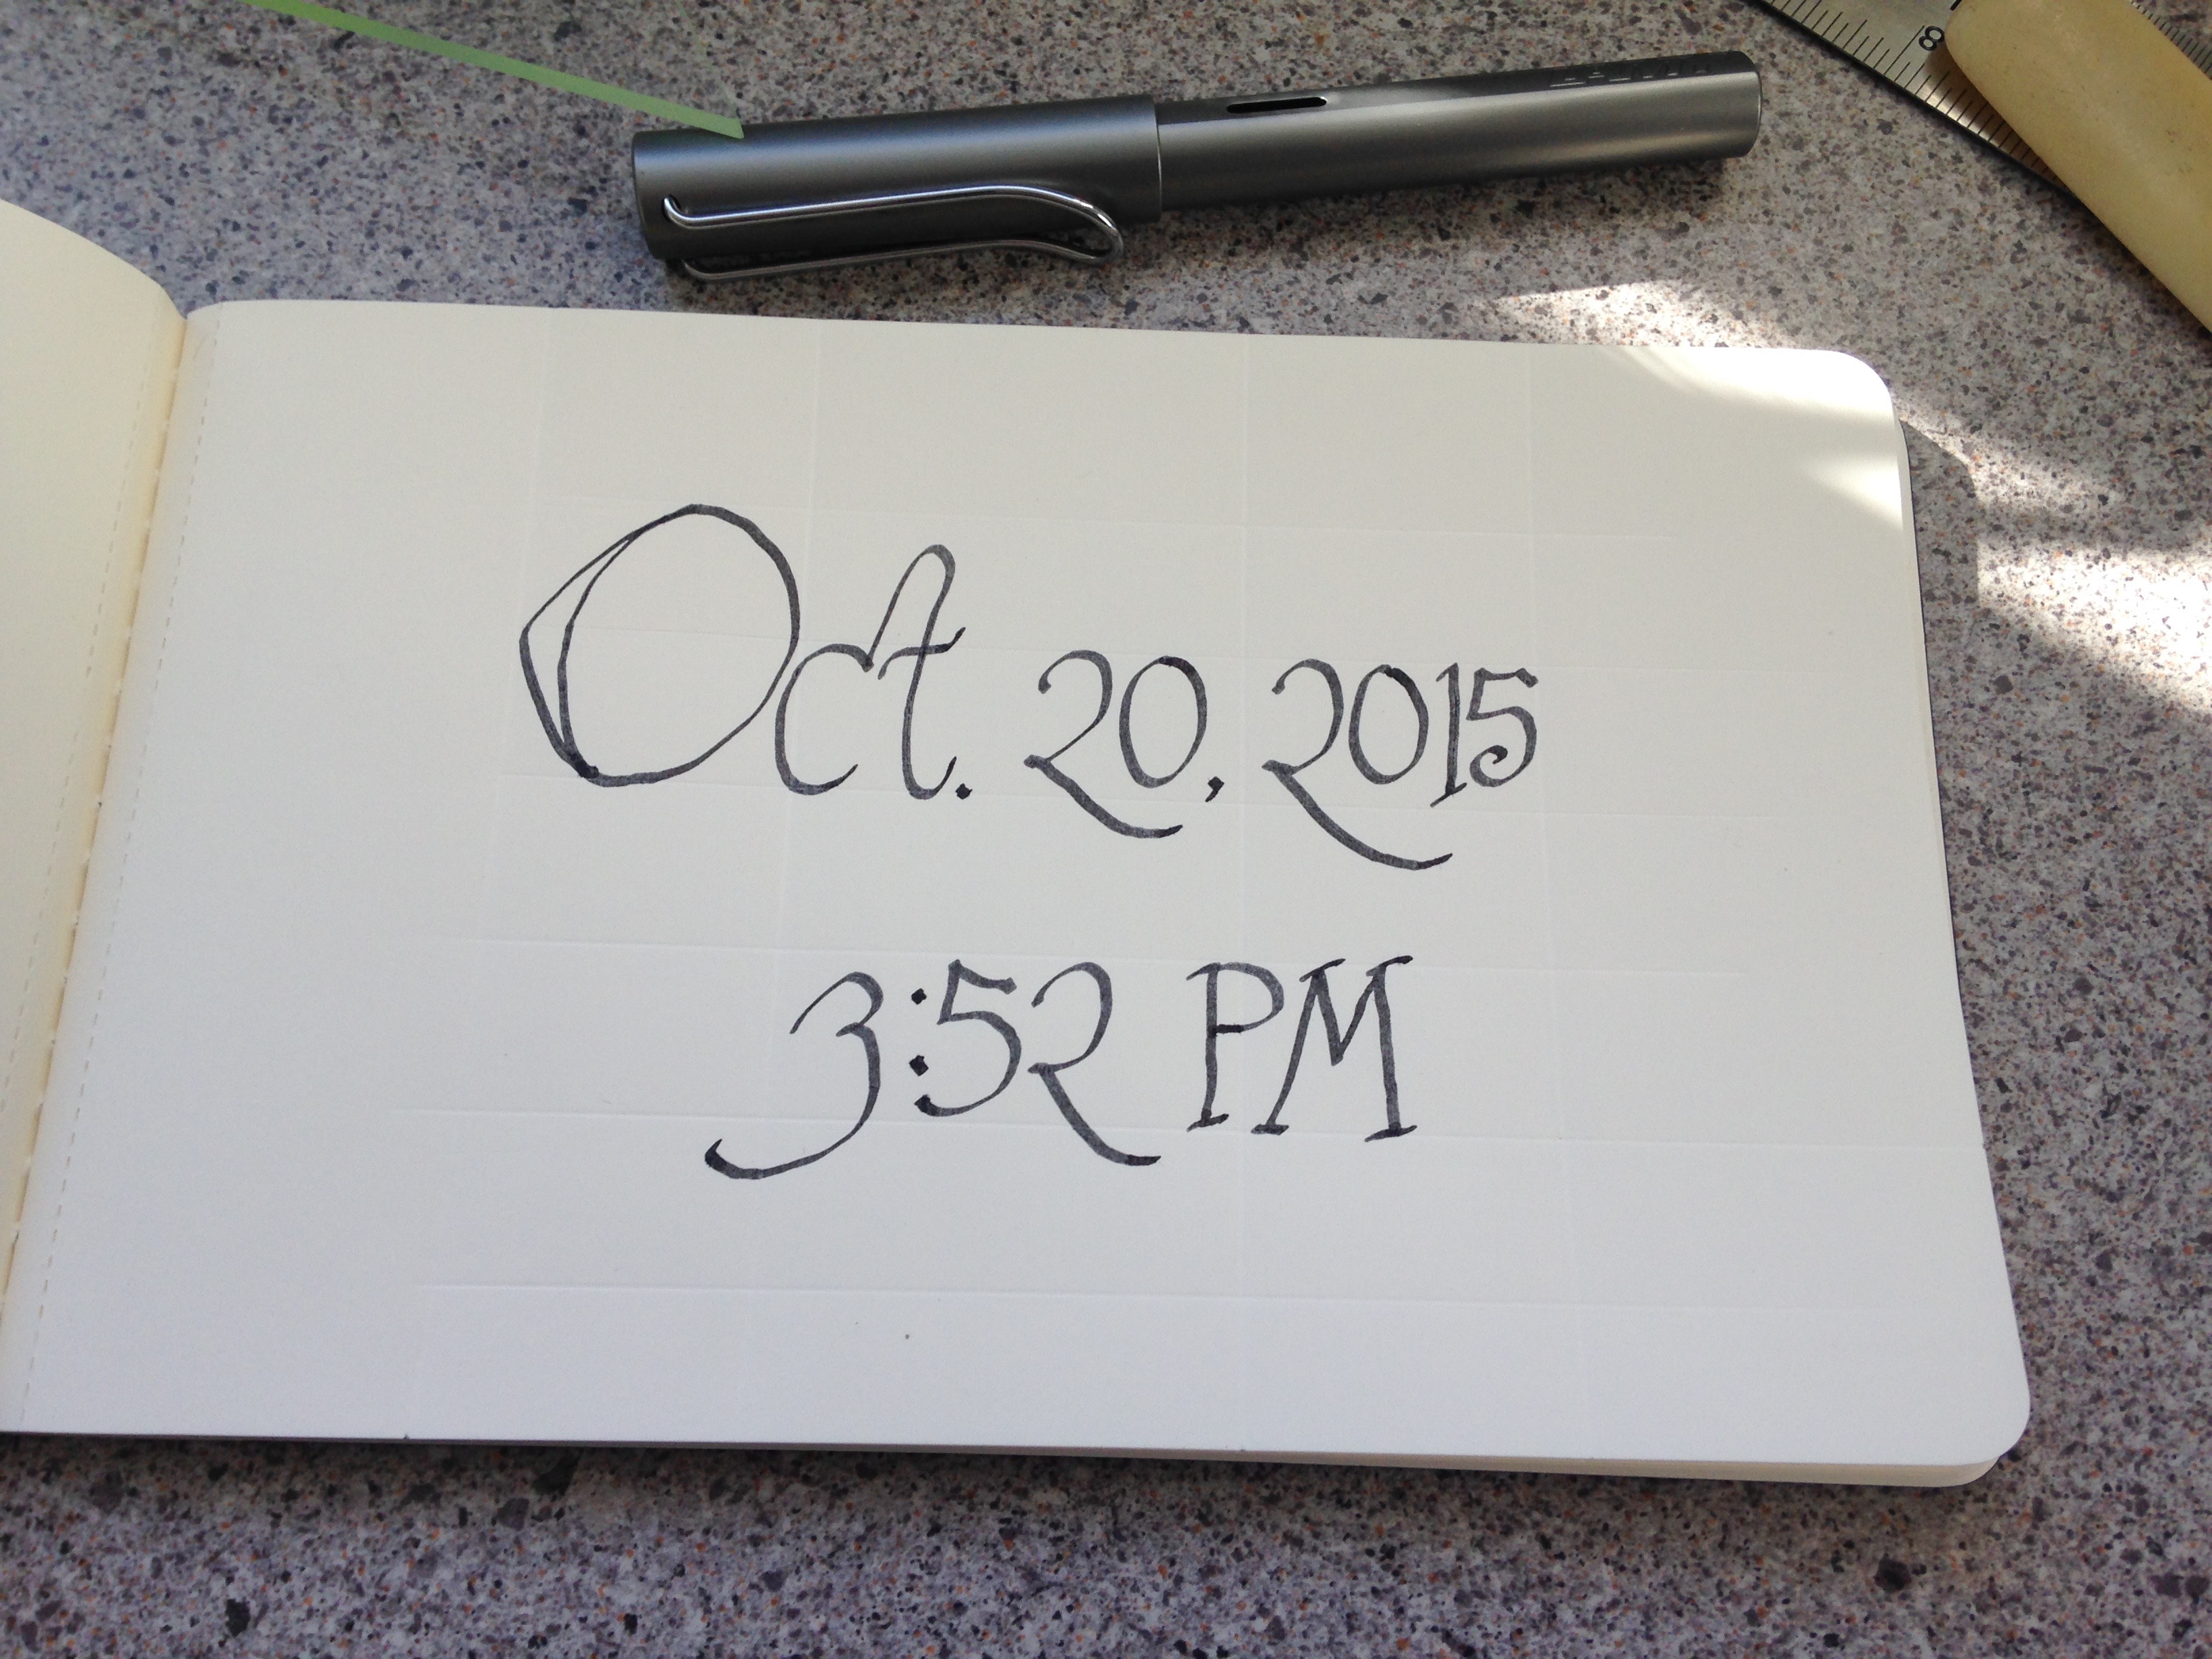 Oct. 20, 2015
3:52 PM
8